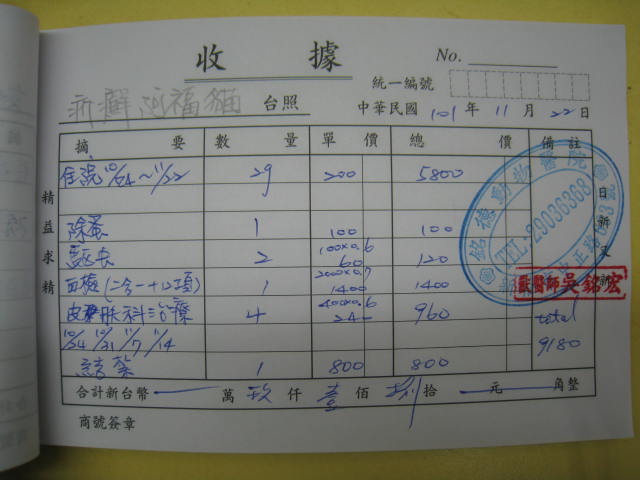 收 據
No.
統一編號
新癬 福貓 台照
中華民國 101 年 11 月 22 日
摘 要 數 量 單 價 總 價 備 註
住院 10/24～11/22 29 200 5800
除蚤 1 100 100
驅虫 2 100×0.6 60 120
血檢(二合一+12項) 1 2000×0.7 1400 1400
皮膚科治療 4 400×0.6 240 960
10/24 10/31 11/7 11/14
1 800 800
total
9180
合計新台幣 萬 玖 仟 壹 佰 捌 拾 元 角整
商號簽章
精益求精
日新又新
銘德動物醫院
TEL:29036368
獸醫師 吳銘宏